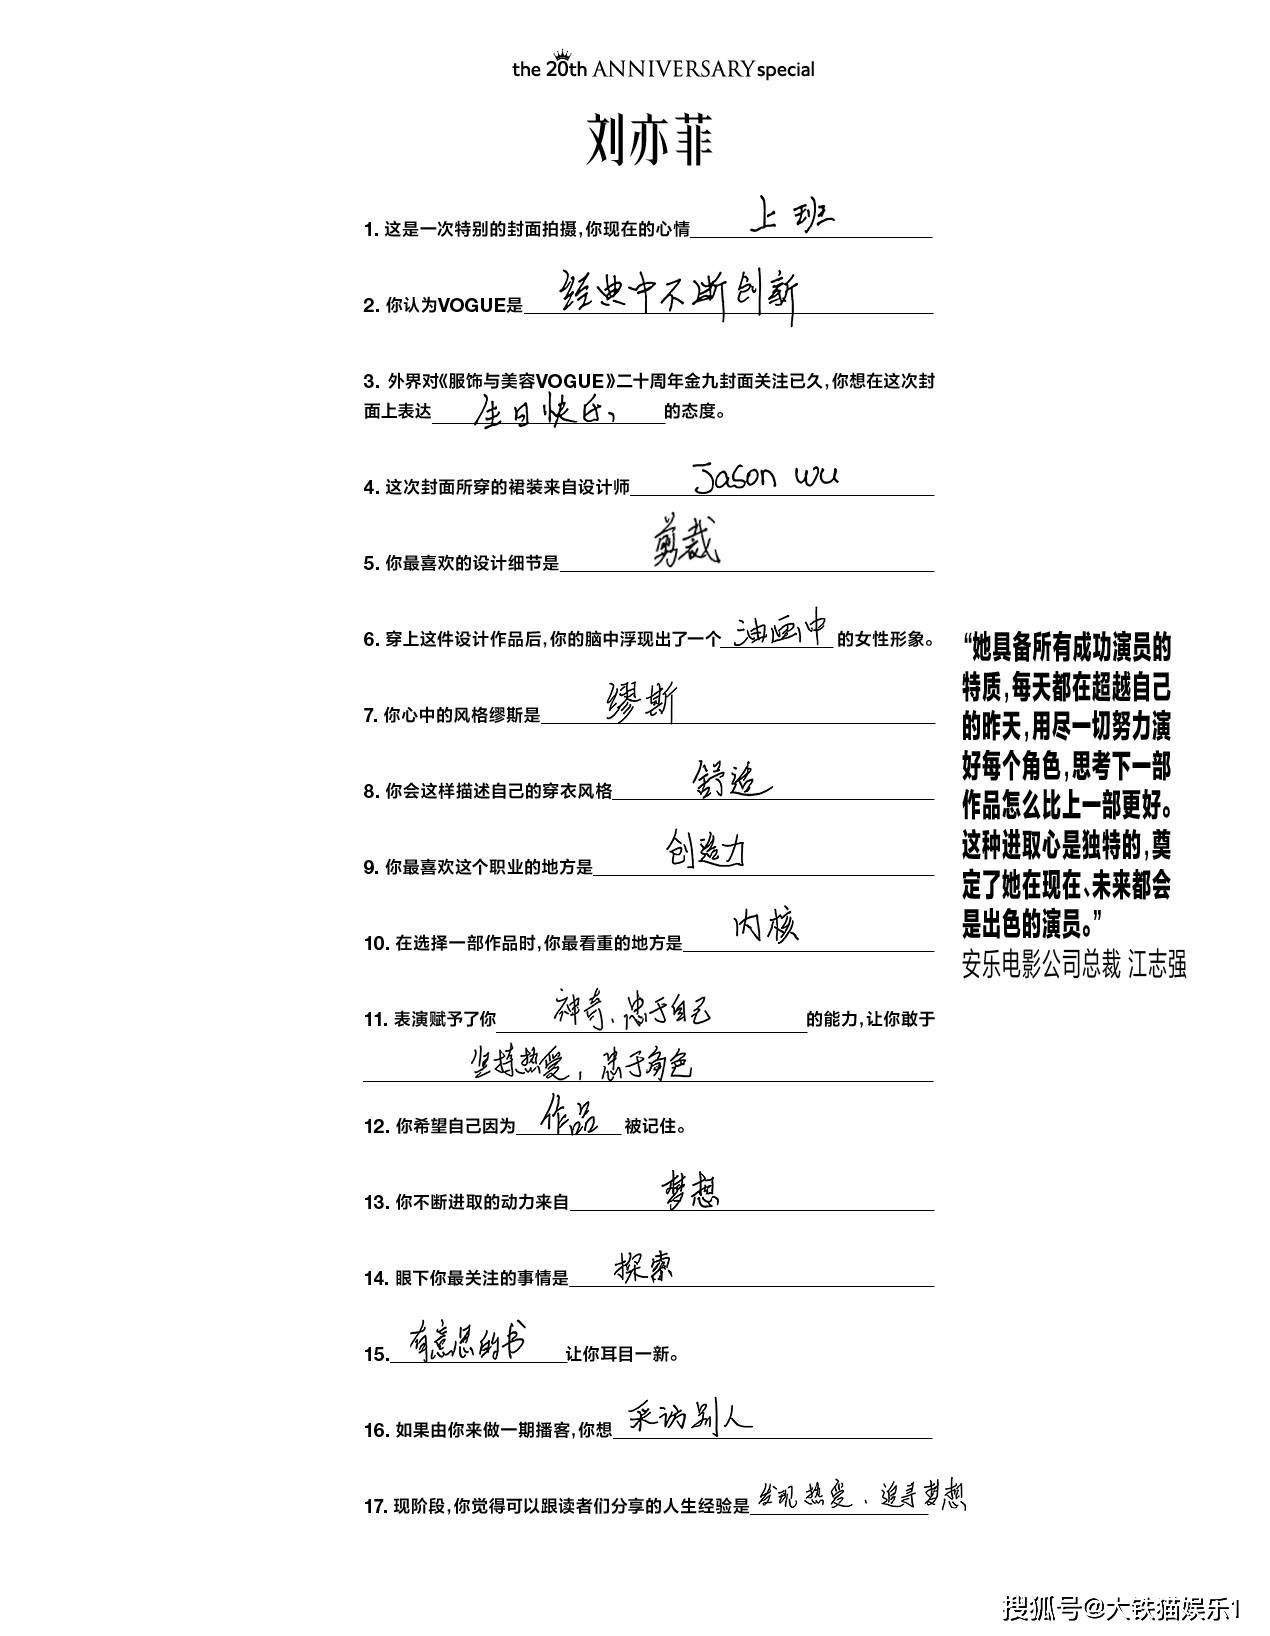 the 20th ANNIVERSARY special
刘亦菲
1. 这是一次特别的封面拍摄,你现在的心情上班
2. 你认为VOGUE是经典中不断创新
3. 外界对《服饰与美容VOGUE》二十周年金九封面关注已久,你想在这次封
面上表达生日快乐,的态度。
4. 这次封面所穿的裙装来自设计师Jason wu
5. 你最喜欢的设计细节是剪裁
6. 穿上这件设计作品后,你的脑中浮现出了一个油画中的女性形象。
7. 你心中的风格缪斯是缪斯
8. 你会这样描述自己的穿衣风格舒适
9. 你最喜欢这个职业的地方是创造力
10. 在选择一部作品时,你最看重的地方是内核
11. 表演赋予了你神奇、忠于自己的能力,让你敢于
坚持热爱,忠于角色
12. 你希望自己因为作品被记住。
13. 你不断进取的动力来自梦想
14. 眼下你最关注的事情是探索
15. 有意思的书让你耳目一新。
16. 如果由你来做一期播客,你想采访别人
17. 现阶段,你觉得可以跟读者们分享的人生经验是发现热爱、追寻梦想
“她具备所有成功演员的
特质,每天都在超越自己
的昨天,用尽一切努力演
好每个角色,思考下一部
作品怎么比上一部更好。
这种进取心是独特的,奠
定了她在现在、未来都会
是出色的演员。”
安乐电影公司总裁 江志强
搜狐号@大铁猫娱乐1